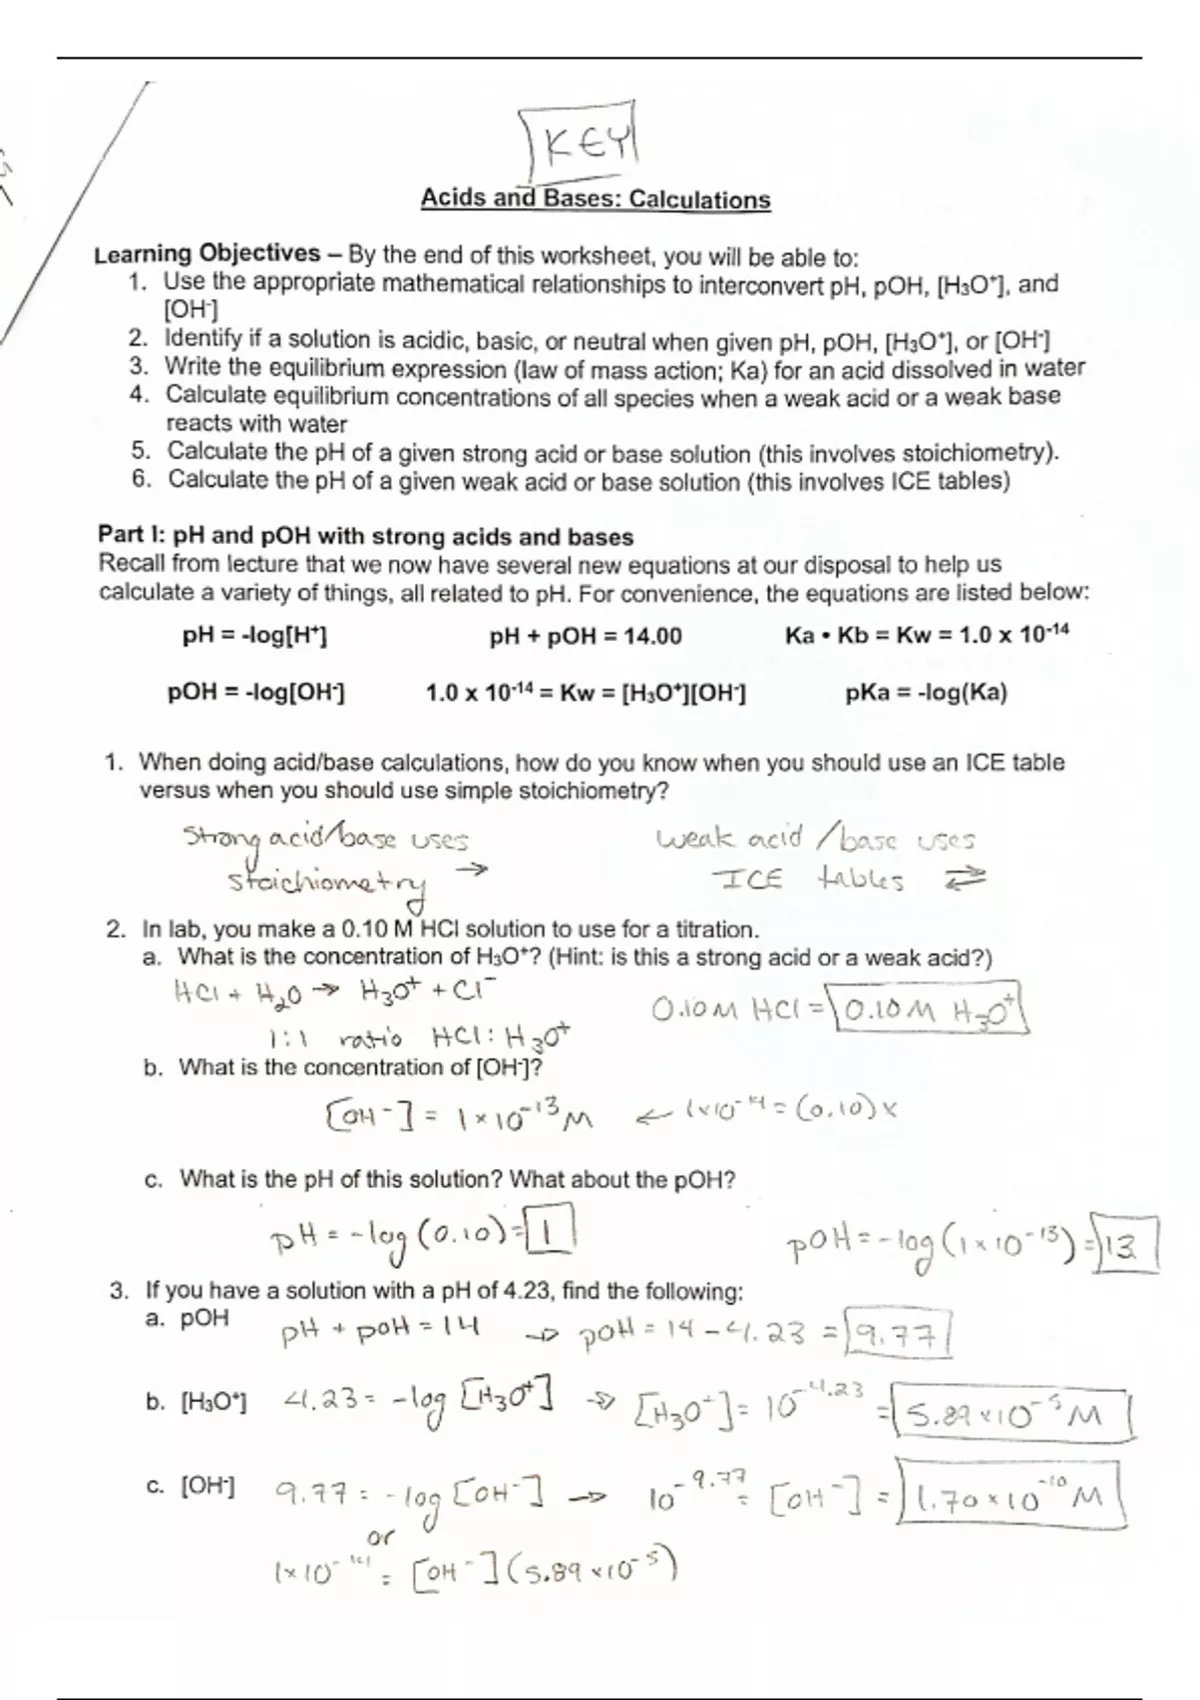 KEY
Acids and Bases: Calculations
Learning Objectives – By the end of this worksheet, you will be able to:
1. Use the appropriate mathematical relationships to interconvert pH, pOH, [H₃O⁺], and
[OH⁻]
2. Identify if a solution is acidic, basic, or neutral when given pH, pOH, [H₃O⁺], or [OH⁻]
3. Write the equilibrium expression (law of mass action; Ka) for an acid dissolved in water
4. Calculate equilibrium concentrations of all species when a weak acid or a weak base
reacts with water
5. Calculate the pH of a given strong acid or base solution (this involves stoichiometry).
6. Calculate the pH of a given weak acid or base solution (this involves ICE tables)
Part I: pH and pOH with strong acids and bases
Recall from lecture that we now have several new equations at our disposal to help us
calculate a variety of things, all related to pH. For convenience, the equations are listed below:
pH = -log[H⁺] pH + pOH = 14.00 Ka • Kb = Kw = 1.0 x 10⁻¹⁴
pOH = -log[OH⁻] 1.0 x 10⁻¹⁴ = Kw = [H₃O⁺][OH⁻] pKa = -log(Ka)
1. When doing acid/base calculations, how do you know when you should use an ICE table
versus when you should use simple stoichiometry?
Strong acid/base uses weak acid/base uses
stoichiometry → ICE tables ⇌
2. In lab, you make a 0.10 M HCl solution to use for a titration.
a. What is the concentration of H₃O⁺? (Hint: is this a strong acid or a weak acid?)
HCl + H₂O → H₃O⁺ + Cl⁻ 0.10M HCl = 0.10M H₃O⁺
1:1 ratio HCl : H₃O⁺
b. What is the concentration of [OH⁻]?
[OH⁻] = 1×10⁻¹³ M ← 1×10⁻¹⁴ = (0.10)x
c. What is the pH of this solution? What about the pOH?
pH = -log(0.10) = 1 pOH = -log(1×10⁻¹³) = 13
3. If you have a solution with a pH of 4.23, find the following:
a. pOH pH + pOH = 14 → pOH = 14 - 4.23 = 9.77
b. [H₃O⁺] 4.23 = -log [H₃O⁺] → [H₃O⁺] = 10⁻⁴·²³ = 5.89×10⁻⁵ M
c. [OH⁻] 9.77 = -log [OH⁻] → 10⁻⁹·⁷⁷ = [OH⁻] = 1.70×10⁻¹⁰ M
or
1×10⁻¹⁴ = [OH⁻](5.89×10⁻⁵)